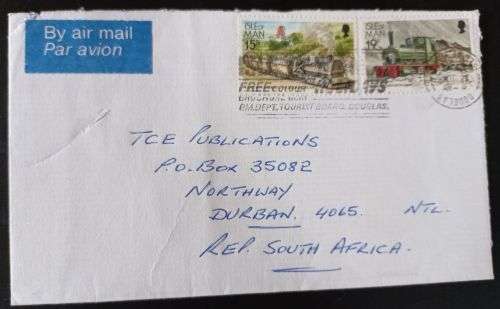 By air mail
Par avion
ISLE OF MAN
15p
ISLE OF MAN
19p
FREE colour
BROCHURE FROM
P.M. DEPT. TOURIST BOARD, DOUGLAS,
TCE PUBLICATIONS
P.O. BOX 35082
NORTHWAY
DURBAN. 4065. NTL.
REP. SOUTH AFRICA.